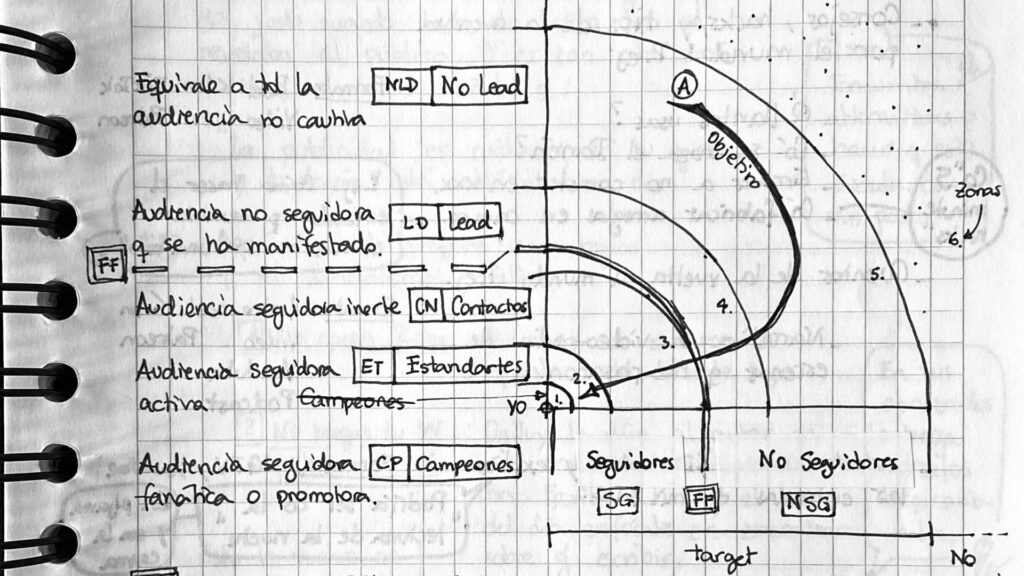 Equivale a td la
audiencia no cautiva
NLD No Lead
Audiencia no seguidora
q se ha manifestado.
LD Lead
FF
Audiencia seguidora inerte
CN Contactos
Audiencia seguidora
activa
ET Estandartes
Campeones
Audiencia seguidora
fanática o promotora.
CP Campeones
A
Objetivo
Zonas
6.
5.
4.
3.
2.
1.
YO
Seguidores
No Seguidores
SG
NSG
target
No